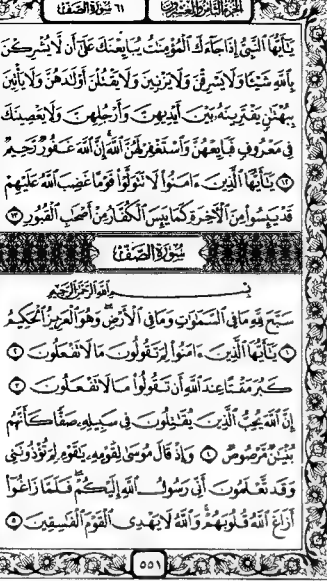 الجزء الثامن والعشرون ٦١ سورة الصف
يَـٰٓأَيُّهَا ٱلنَّبِىُّ إِذَا جَآءَكَ ٱلْمُؤْمِنَـٰتُ يُبَايِعْنَكَ عَلَىٰٓ أَن لَّا يُشْرِكْنَ
بِٱللَّهِ شَيْـًٔا وَلَا يَسْرِقْنَ وَلَا يَزْنِينَ وَلَا يَقْتُلْنَ أَوْلَـٰدَهُنَّ وَلَا يَأْتِينَ
بِبُهْتَـٰنٍ يَفْتَرِينَهُۥ بَيْنَ أَيْدِيهِنَّ وَأَرْجُلِهِنَّ وَلَا يَعْصِينَكَ
فِى مَعْرُوفٍ فَبَايِعْهُنَّ وَٱسْتَغْفِرْ لَهُنَّ ٱللَّهَ إِنَّ ٱللَّهَ غَفُورٌ رَّحِيمٌ
١٢ يَـٰٓأَيُّهَا ٱلَّذِينَ ءَامَنُوا۟ لَا تَتَوَلَّوْا۟ قَوْمًا غَضِبَ ٱللَّهُ عَلَيْهِمْ
قَدْ يَئِسُوا۟ مِنَ ٱلْـَٔاخِرَةِ كَمَا يَئِسَ ٱلْكُفَّارُ مِنْ أَصْحَـٰبِ ٱلْقُبُورِ ١٣
سُورَةُ الصَّفِّ
بِسْمِ ٱللَّهِ ٱلرَّحْمَـٰنِ ٱلرَّحِيمِ
سَبَّحَ لِلَّهِ مَا فِى ٱلسَّمَـٰوَٰتِ وَمَا فِى ٱلْأَرْضِ ۖ وَهُوَ ٱلْعَزِيزُ ٱلْحَكِيمُ
١ يَـٰٓأَيُّهَا ٱلَّذِينَ ءَامَنُوا۟ لِمَ تَقُولُونَ مَا لَا تَفْعَلُونَ ٢
كَبُرَ مَقْتًا عِندَ ٱللَّهِ أَن تَقُولُوا۟ مَا لَا تَفْعَلُونَ ٣
إِنَّ ٱللَّهَ يُحِبُّ ٱلَّذِينَ يُقَـٰتِلُونَ فِى سَبِيلِهِۦ صَفًّا كَأَنَّهُم
بُنْيَـٰنٌ مَّرْصُوصٌ ٤ وَإِذْ قَالَ مُوسَىٰ لِقَوْمِهِۦ يَـٰقَوْمِ لِمَ تُؤْذُونَنِى
وَقَد تَّعْلَمُونَ أَنِّى رَسُولُ ٱللَّهِ إِلَيْكُمْ ۖ فَلَمَّا زَاغُوٓا۟
أَزَاغَ ٱللَّهُ قُلُوبَهُمْ ۚ وَٱللَّهُ لَا يَهْدِى ٱلْقَوْمَ ٱلْفَـٰسِقِينَ ٥
٥٥١